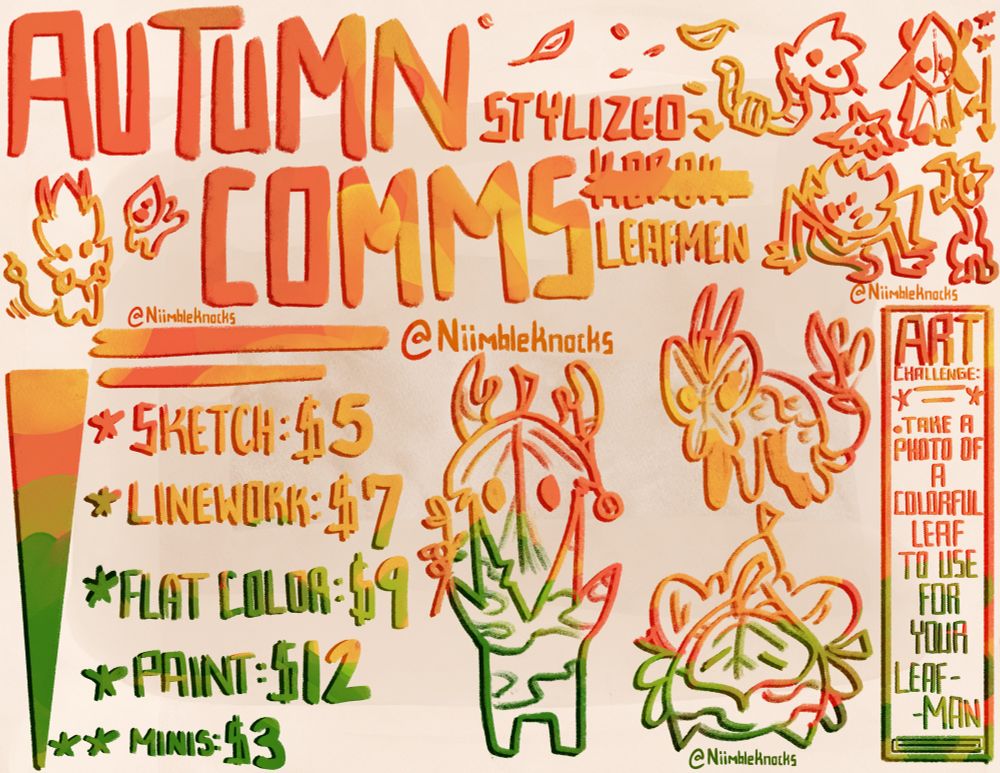 AUTUMN
COMMS
STYLIZED
KOROK
LEAFMEN
@NiimbleKnocks
@NiimbleKnocks
@NiimbleKnocks
*SKETCH: $5
*LINEWORK: $7
*FLAT COLOR: $9
*PAINT: $12
**MINIS: $3
ART
CHALLENGE:
* *
•TAKE A
PHOTO OF
A
COLORFUL
LEAF
TO USE
FOR
YOUR
LEAF-
-MAN
@NiimbleKnocks